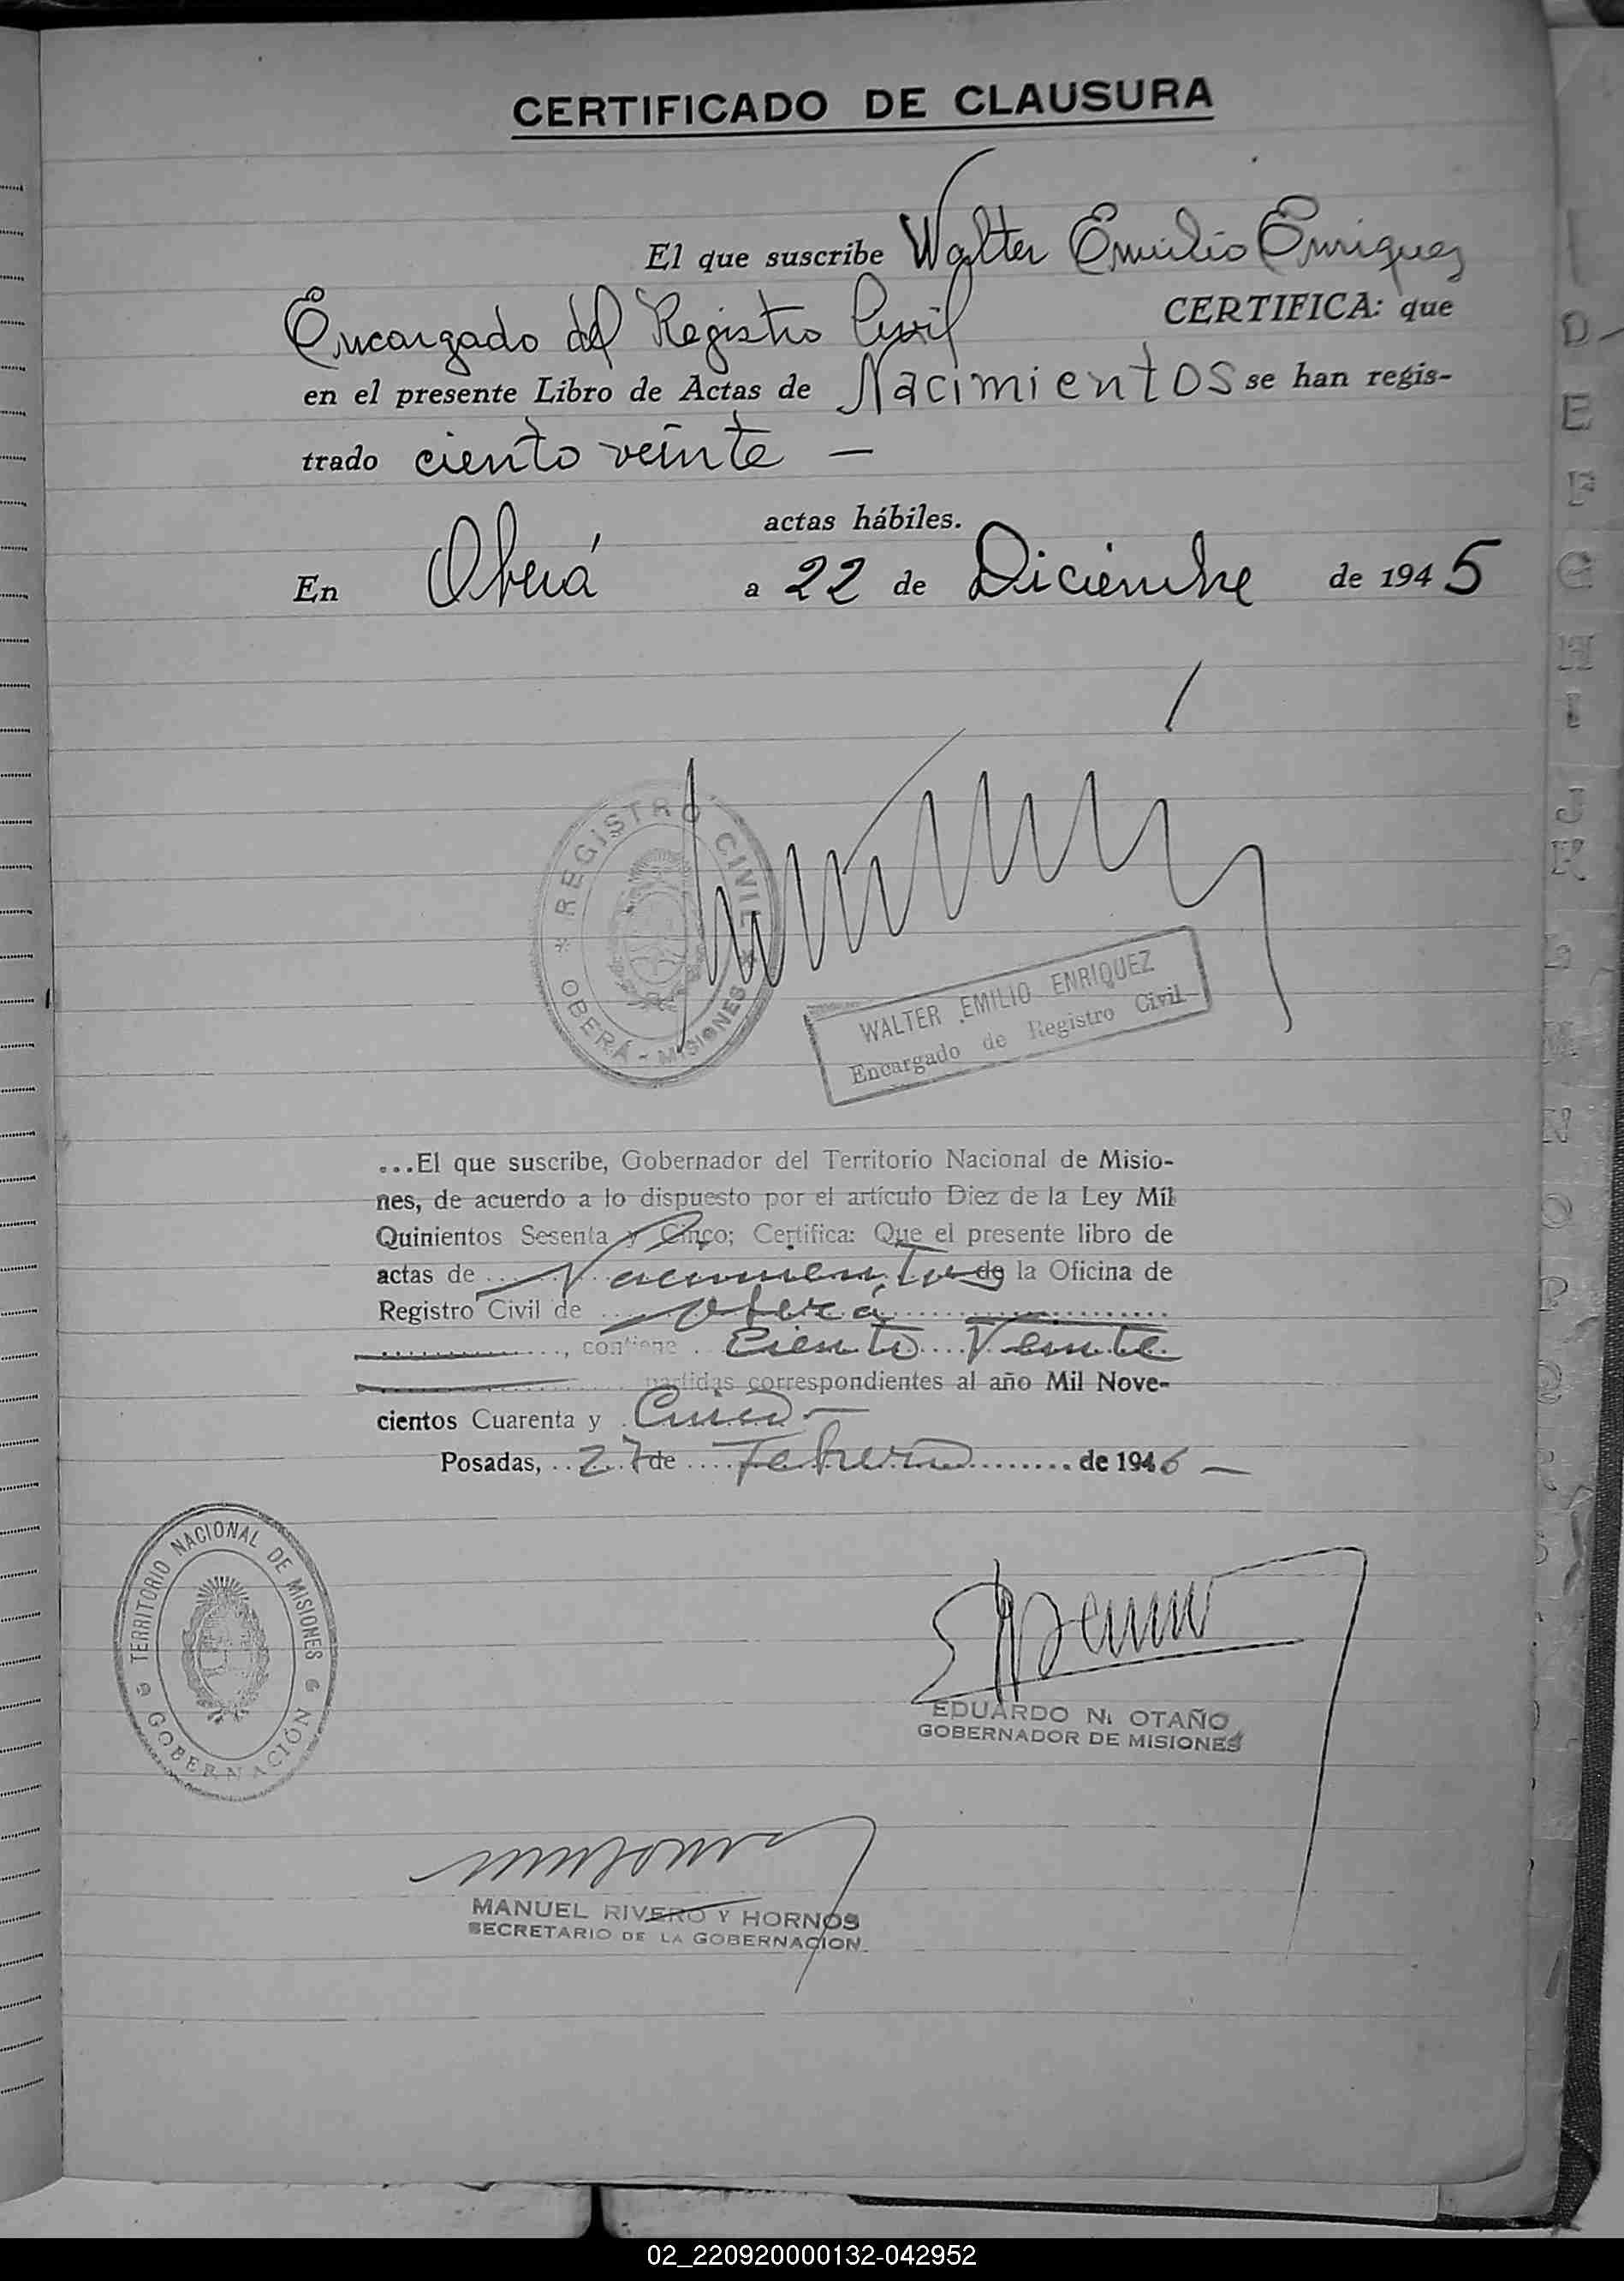 CERTIFICADO DE CLAUSURA
El que suscribe Walter Emilio Enriquez
Encargado del Registro Civil CERTIFICA: que
en el presente Libro de Actas de Nacimientos se han regis-
trado ciento veinte —
actas hábiles.
En Oberá a 22 de Diciembre de 1945
REGISTRO CIVIL
* OBERÁ - MISIONES *
WALTER EMILIO ENRIQUEZ
Encargado de Registro Civil
...El que suscribe, Gobernador del Territorio Nacional de Misio-
nes, de acuerdo a lo dispuesto por el artículo Diez de la Ley Mil
Quinientos Sesenta y Cinco; Certifica: Que el presente libro de
actas de Nacimientos de la Oficina de
Registro Civil de Oberá
, contiene Ciento Veinte
partidas correspondientes al año Mil Nove-
cientos Cuarenta y Cinco —
Posadas, 27 de Febrero de 1946 —
TERRITORIO NACIONAL DE MISIONES
GOBERNACIÓN
EDUARDO N. OTAÑO
GOBERNADOR DE MISIONES
MANUEL RIVERO Y HORNOS
SECRETARIO DE LA GOBERNACION
D
E
F
G
H
I
J
K
L
M
N
O
P
Q
R
02_220920000132-042952